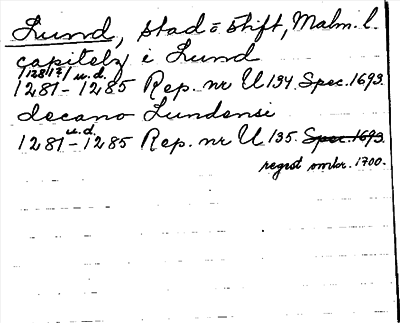 Lund, stad o stift, Malm. l.
capitely i Lund
/1281?/ u.d.
1281-1285 Rep. nr U 134. Spec. 1693.
decano Lundensi
u.d.
1281-1285 Rep. nr U 135. Spec. 1693.
regest omkr. 1700.